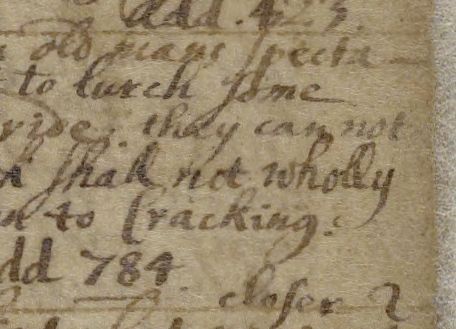 add. 423.
old mans specta
to lurch some
ride: they can not
shall not wholly
to cracking.
dd 784.
closer 2